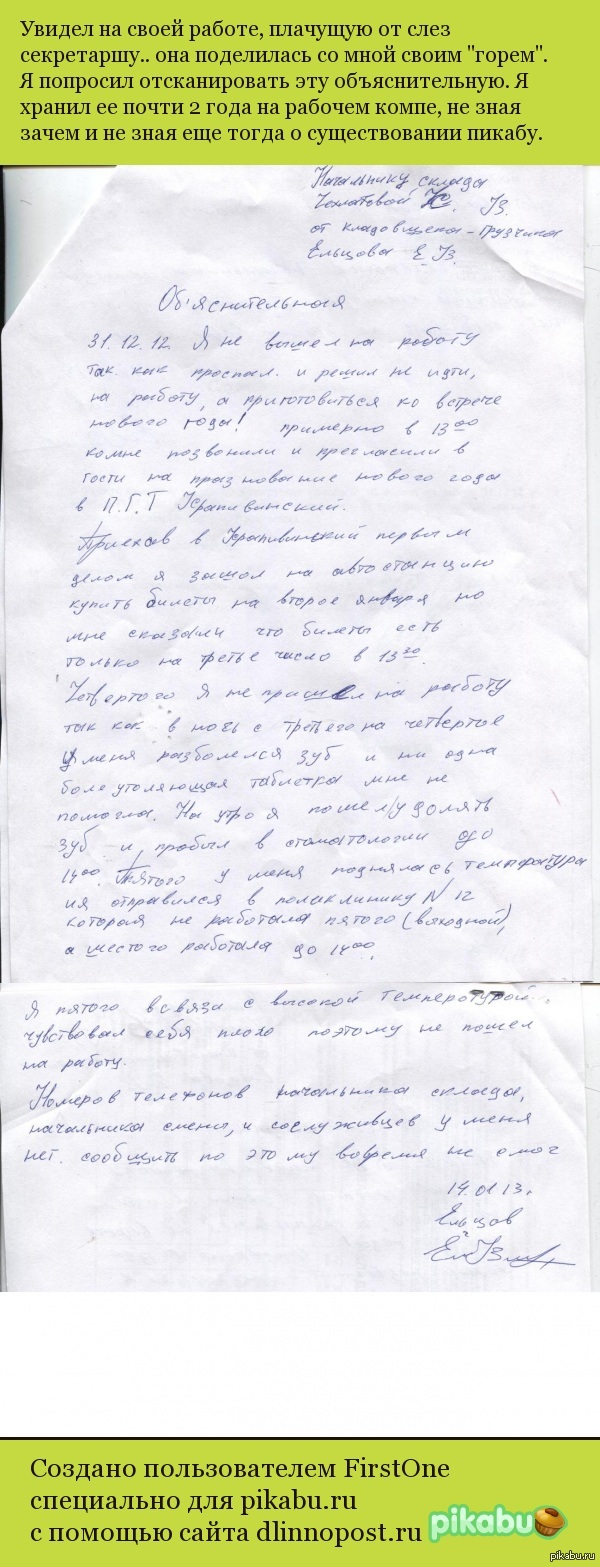 Увидел на своей работе, плачущую от слез
секретаршу.. она поделилась со мной своим "горем".
Я попросил отсканировать эту объяснительную. Я
хранил ее почти 2 года на рабочем компе, не зная
зачем и не зная еще тогда о существовании пикабу.
Начальнику склада
от кладовщика-грузчика
Ельцова Е.
Об'яснительная
31.12.12. Я не вышел на работу
так как проспал. и решил не идти,
на работу, а приготовиться ко встрече
нового года! примерно в 13 00
комне позвонили и прегласили в
гости на празнование нового года
в П.Г.Т Крапивинский.
Приехав в Крапивинский первым
делом я зашол на автостанцию
купить билеты на второе января но
мне сказали что билеты есть
только на третье число в 13 30.
Четвертого я не пришел на работу
так как в ночь с третьего на четвертое
у меня разболелся зуб и ни одна
болеутоляющая таблетка мне не
помогла. На утро я пошел удолять
зуб и пробыл в стоматологии до
14 00. Пятого у меня поднялась температура
ия отправился в полаклинику N 12
которая не работала пятого (выходной),
а шестого работала до 14 00.
Я пятого всвязи с высокой температурой.
чувствовал себя плохо поэтому не пошел
на работу.
Номеров телефонов начальника склада,
начальника смены, и сослуживцев у меня
нет. сообщить по этому вовремя не смог
14.01 13.
Ельцов
Создано пользователем FirstOne
специально для pikabu.ru
с помощью сайта dlinnopost.ru
pikabu
pikabu.ru